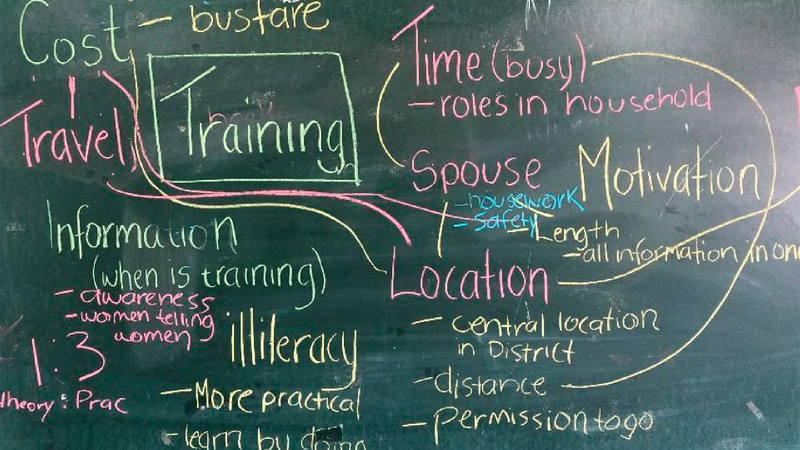 Cost - busfare
Travel
Training
Time (busy)
- roles in household
Spouse
- housework
- Safety
Motivation
- Length
- all information in one
Information
(when is training)
- awareness
- women telling
women
1:3
theory : Prac
illiteracy
- More practical
- learn by doing
Location
- central location
in District
- distance
- permission to go